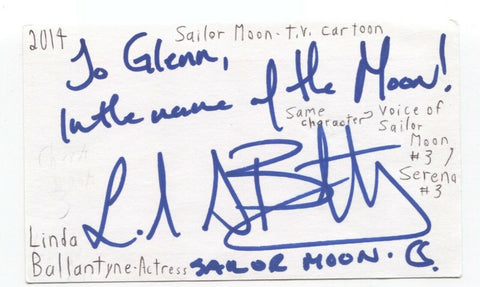 2014
Sailor Moon - t.v. cartoon
To Glenn,
In the name of the Moon!
Same character
Voice of
Sailor
Moon
#3 /
Serena
#3
Linda
Ballantyne - Actress
SAILOR MOON.